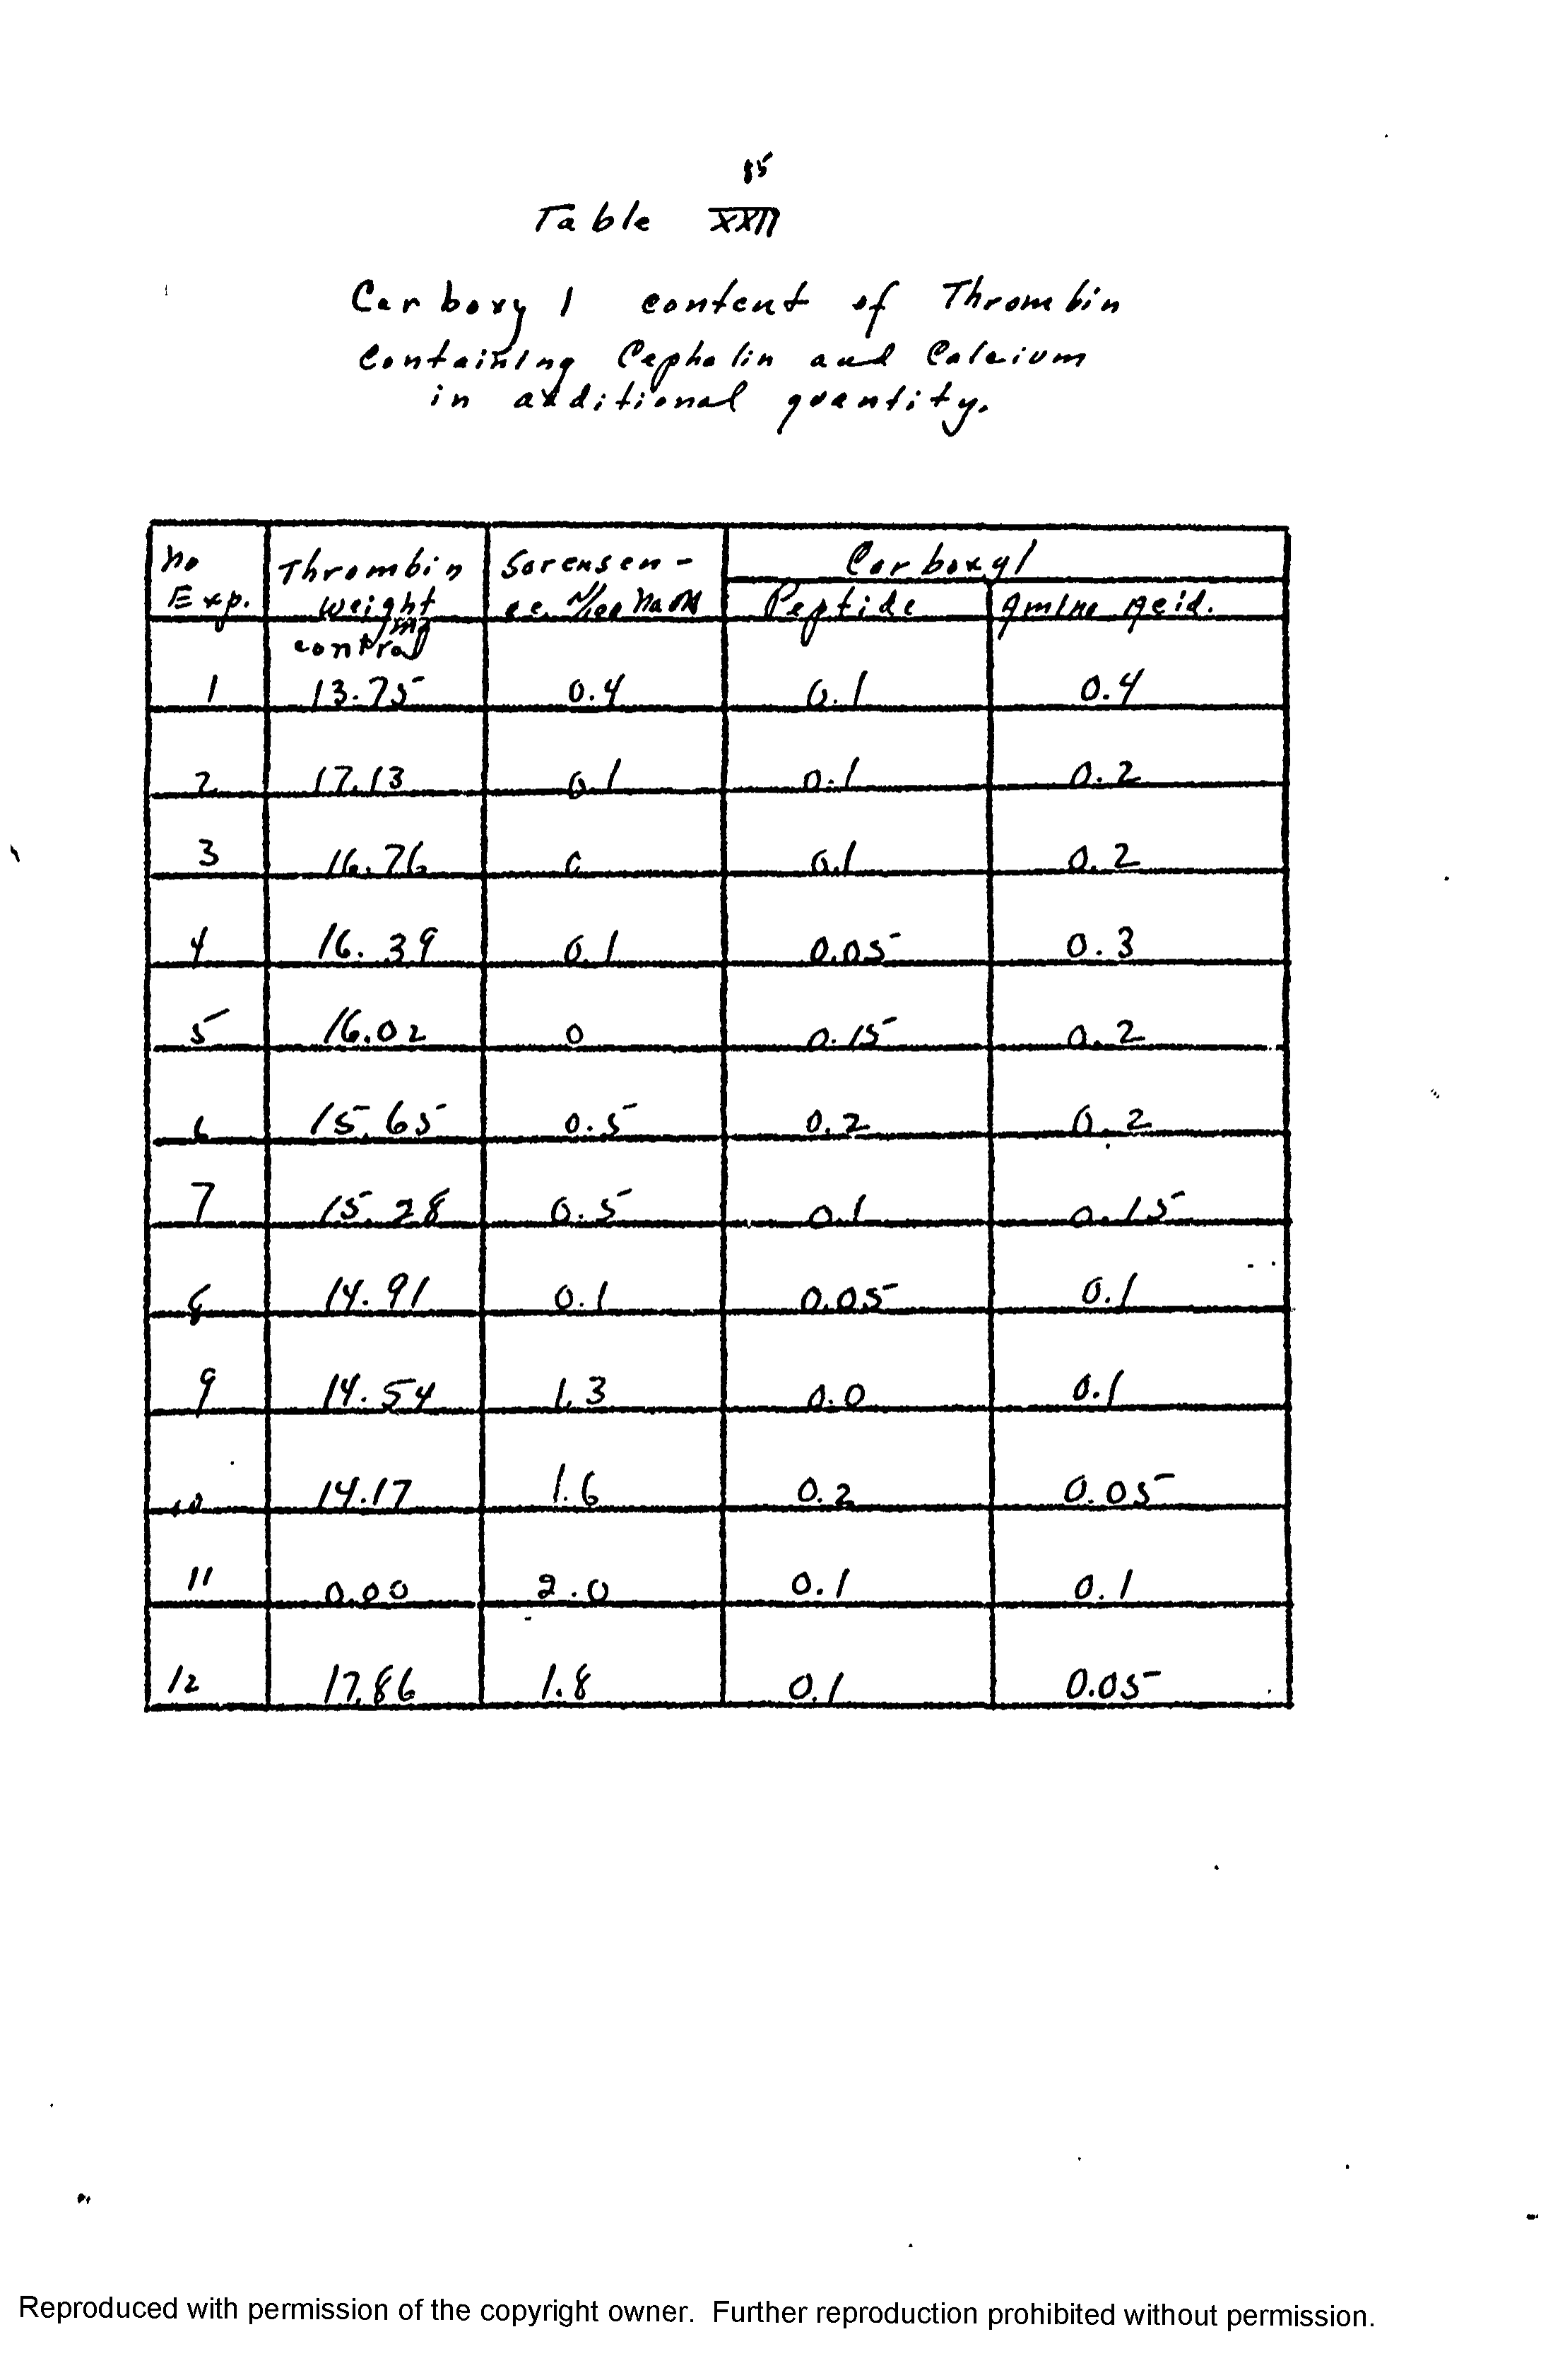 85
Table XXII
Carboxyl content of Thrombin
Containing Cephalin and Calcium
in additional quantity.
No Thrombin Sorensen- Carboxyl
Exp. weight c.c. N/100 NaOH Peptide Amino Acid.
mg
control
1 13.75 0.4 0.1 0.4
2 17.13 0.1 0.1 0.2
3 16.76 0 0.1 0.2
4 16.39 0.1 0.05 0.3
5 16.02 0 0.15 0.2
6 15.65 0.5 0.2 0.2
7 15.28 0.5 0.1 0.15
8 14.91 0.1 0.05 0.1
9 14.54 1.3 0.0 0.1
10 14.17 1.6 0.2 0.05
11 0.00 2.0 0.1 0.1
12 17.86 1.8 0.1 0.05
Reproduced with permission of the copyright owner. Further reproduction prohibited without permission.